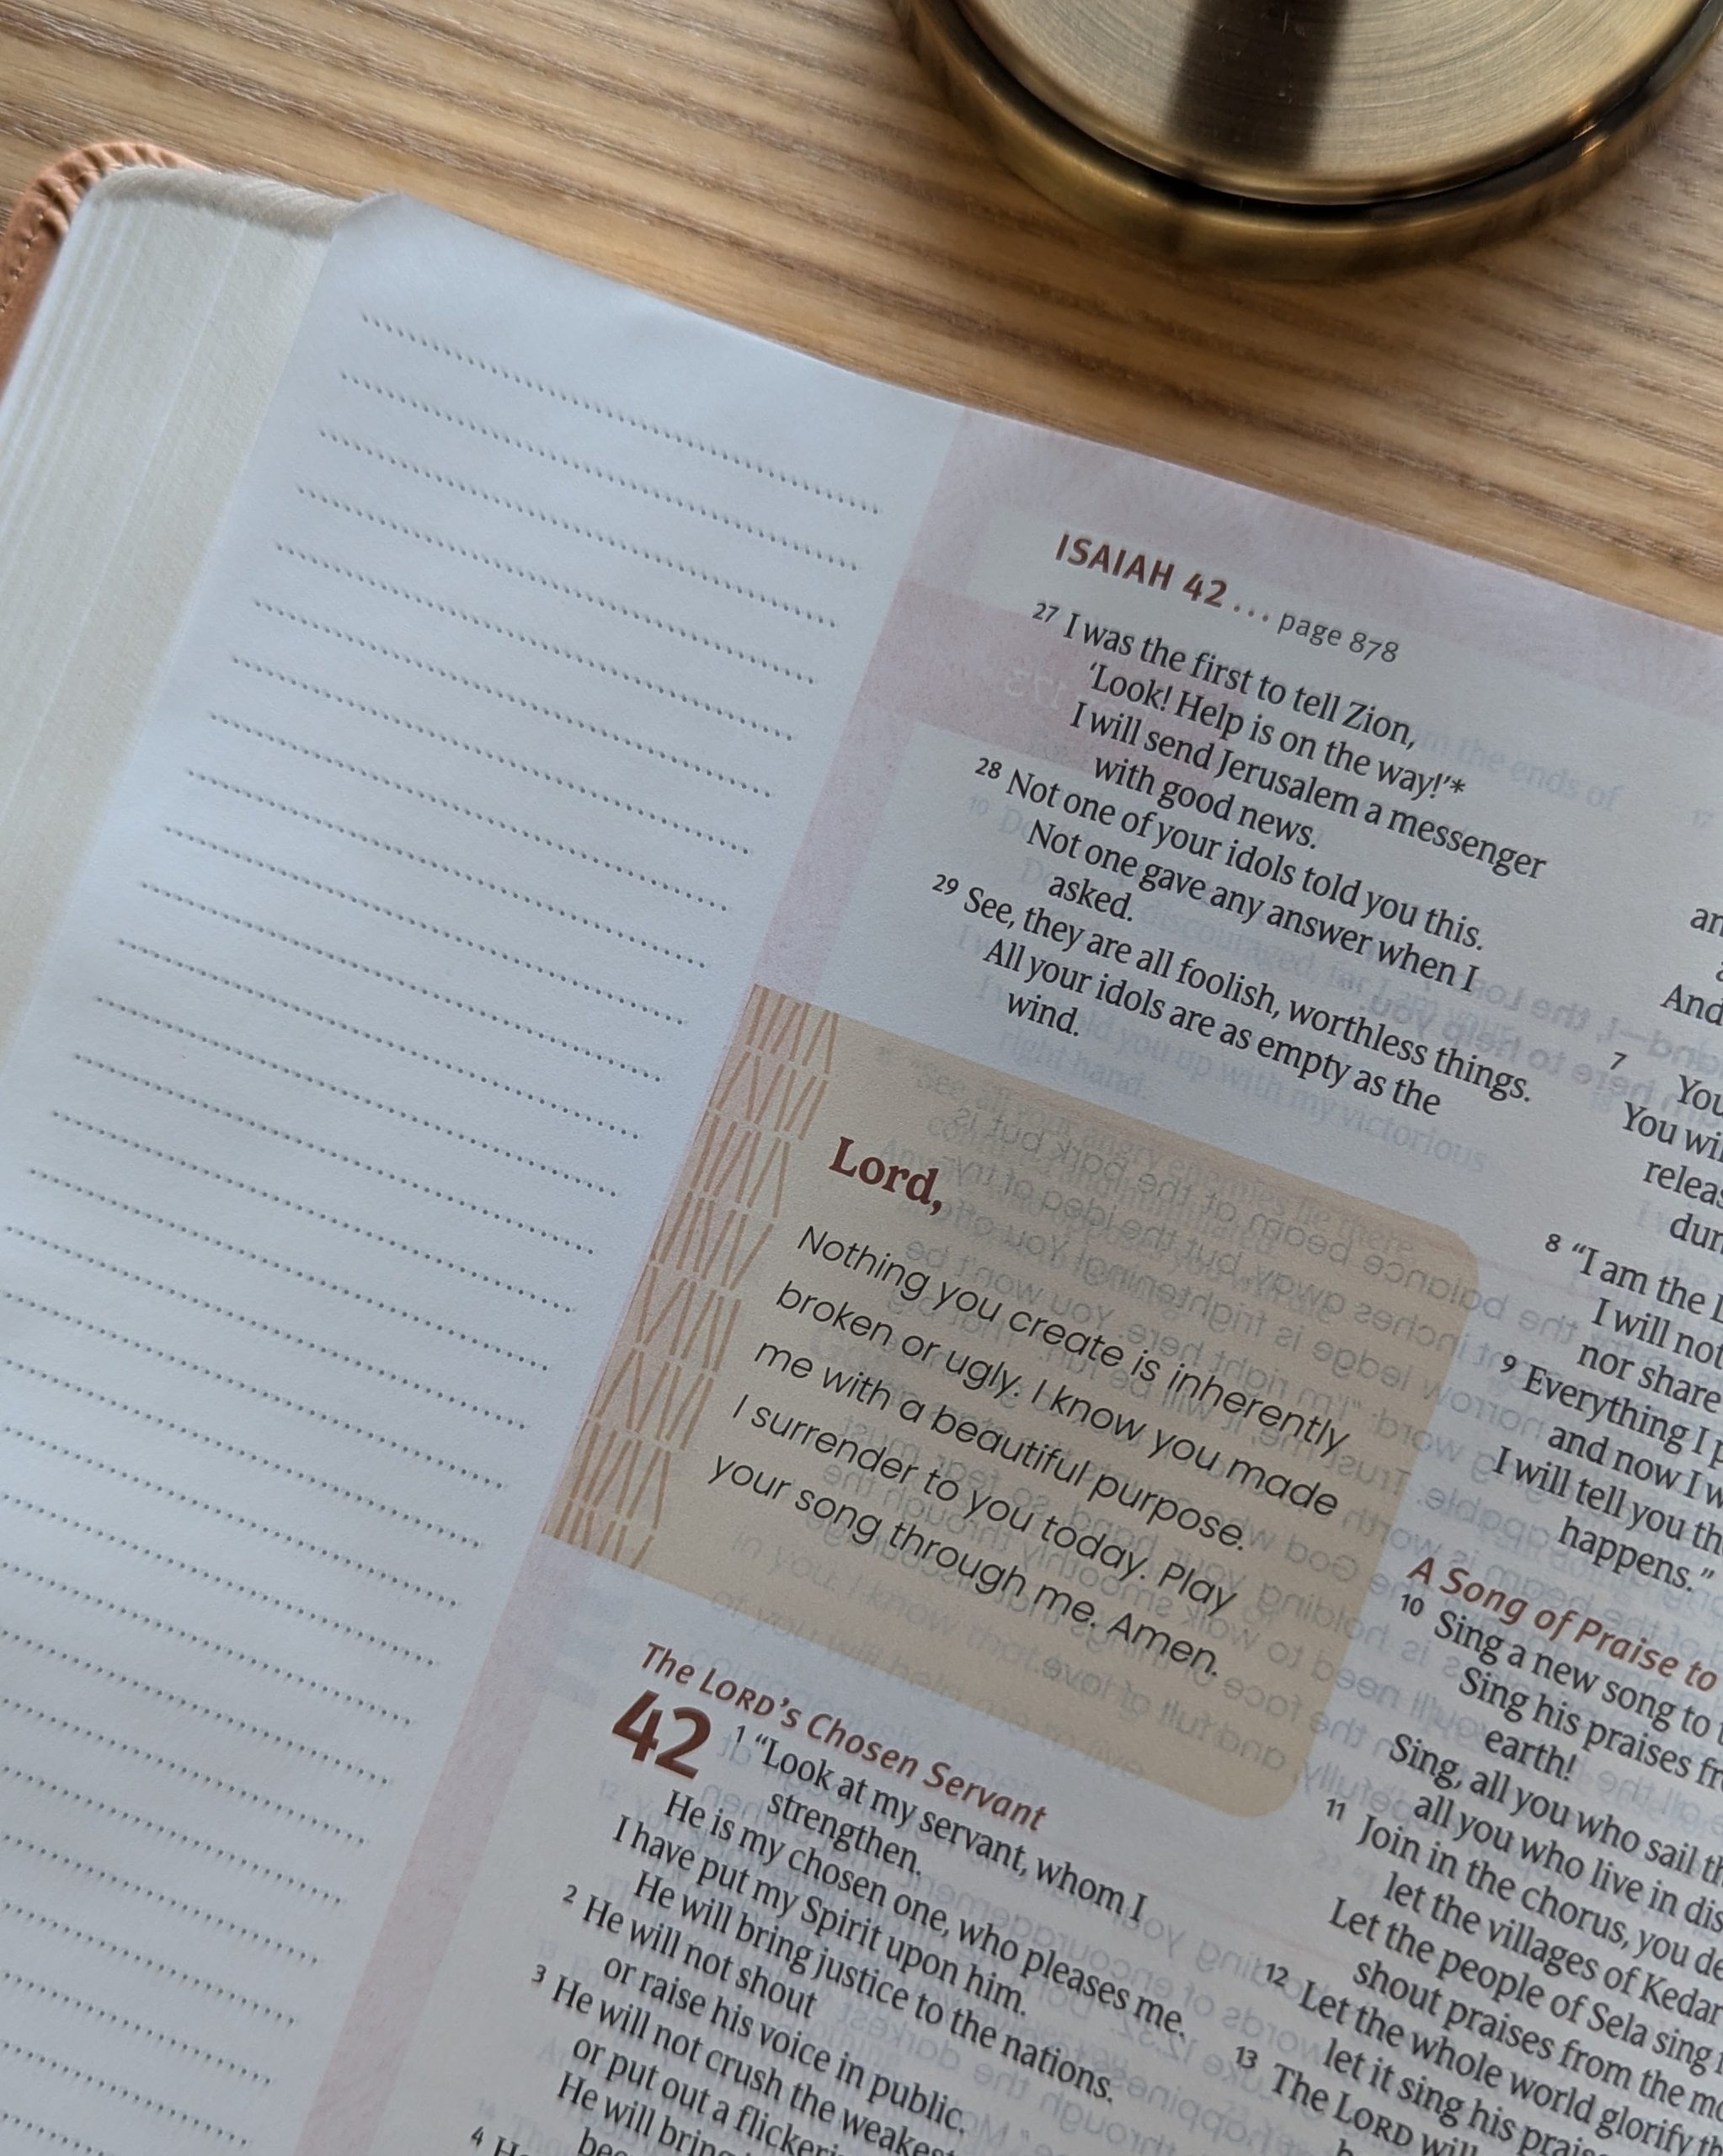 ISAIAH 42 ... page 878
27 I was the first to tell Zion,
‘Look! Help is on the way!’*
I will send Jerusalem a messenger
with good news.
28 Not one of your idols told you this.
Not one gave any answer when I
asked.
29 See, they are all foolish, worthless things.
All your idols are as empty as the
wind.
Lord,
Nothing you create is inherently
broken or ugly. I know you made
me with a beautiful purpose.
I surrender to you today. Play
your song through me. Amen.
The LORD’s Chosen Servant
42 1 “Look at my servant, whom I
strengthen.
He is my chosen one, who pleases me.
I have put my Spirit upon him.
He will bring justice to the nations.
2 He will not shout
or raise his voice in public.
3 He will not crush the weakest
or put out a flickering
He will bring
4 He
And
7 You
You will
8 “I am the
I will not
nor share
9 Everything I
and now I
I will tell you
happens.”
A Song of Praise to
10 Sing a new song to
Sing his praises
earth!
Sing, all you who sail
all you who live in
11 Join in the chorus, you
let the villages of Kedar
Let the people of Sela sing
shout praises from the
12 Let the whole world glorify
let it sing his praise
13 The LORD will